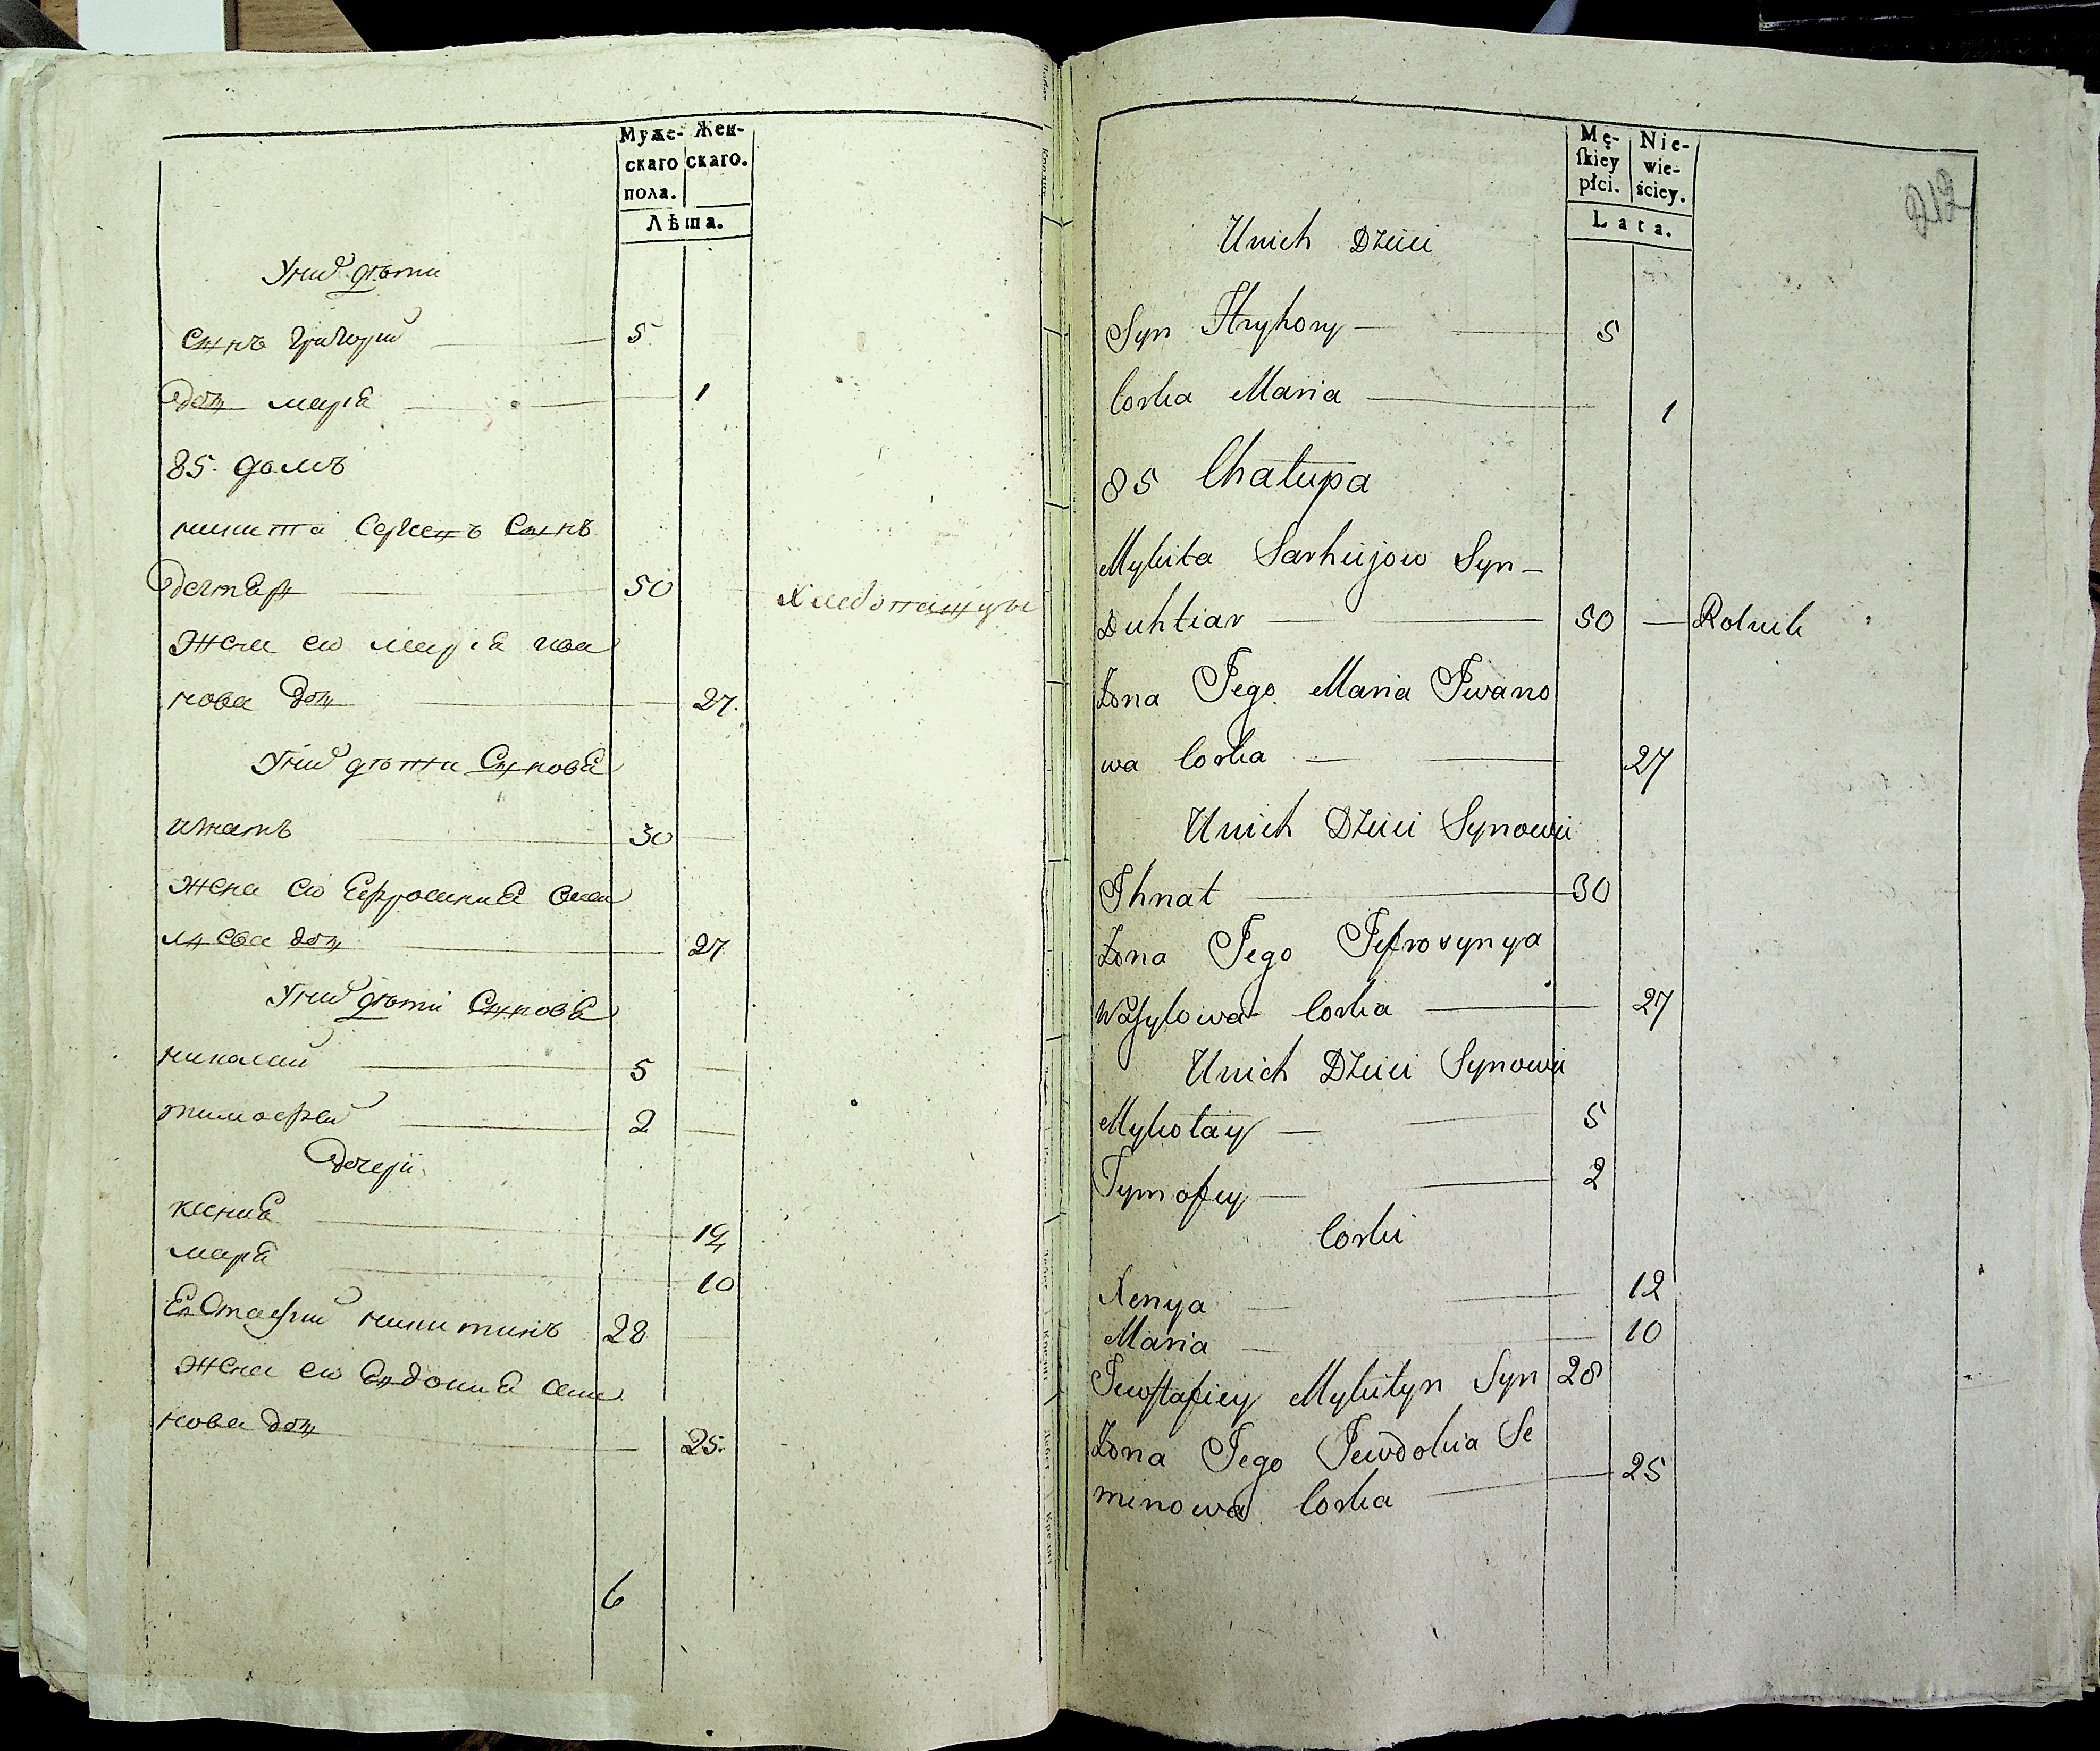 Муже-
скаго
пола.
Жен-
скаго.
Лѣта.
Уних дѣти
Сынъ Григорий 5
Доч мариа 1
85. домъ
никита Сергеевъ Сынъ
Дегтяр 50 Хлебопашцы
Жена ево мариа ива
нова Доч 27.
Уних дѣти Сыновя
игнатъ 30
Жена ево Ефросиниа васи
льева доч 27
Уних дѣти Сыновя
николай 5
тимофей 2
Дочери
ксениа
12
мариа
10
Евстафий никитинъ 28
Жена ево Евдокиа семи
нова доч 25.
6
Mę-
skiey
płci.
Nie-
wie-
ściey.
Lata.
212
Unich Dzieci
Syn Hryhory 5
Corka Maria 1
85 Chałupa
Mykita Sarhiejow Syn
Duhtiar 50 Rolnik
Zona Jego Maria Iwano
wa Corka 27
Unich Dzieci Synowie
Ihnat 30
Zona Jego Jefrosynya
Wasylowa Corka 27
Unich Dzieci Synowie
Mykołay 5
Tymofey 2
Corki
Xenya 12
Maria 10
Jewstafiey Mykityn Syn 28
Zona Jego Jewdokia Se
minowa Corka 25